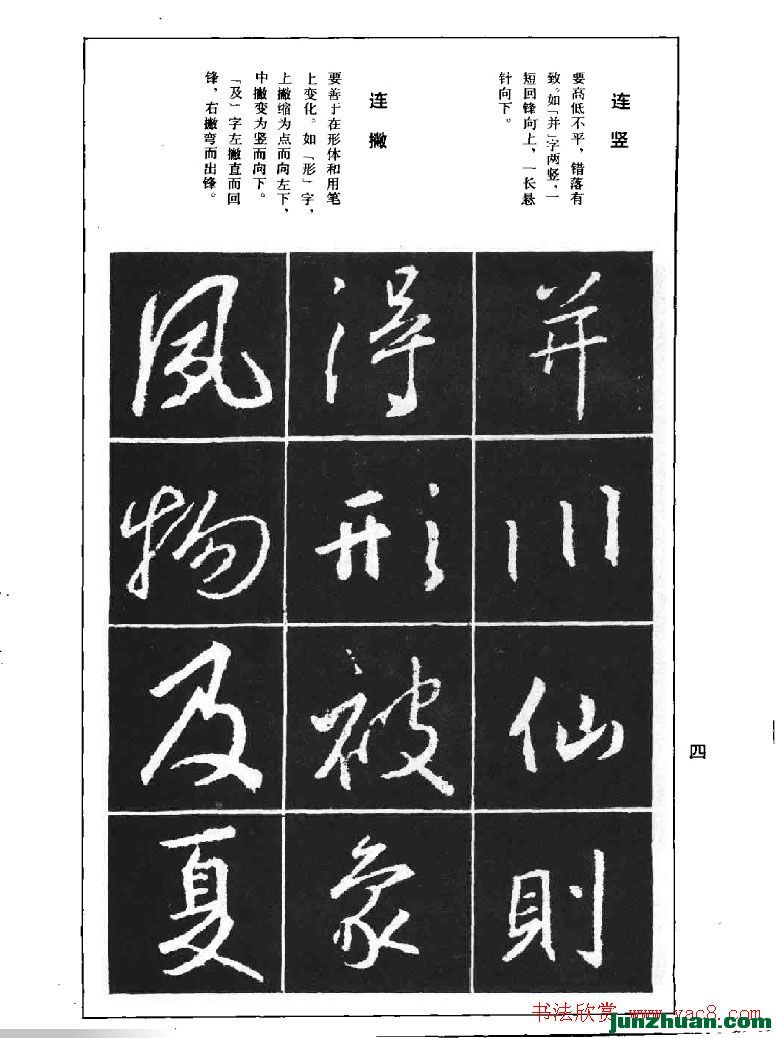 连 竖
要高低不平，错落有
致。如「并」字两竖，一
短回锋向上，一长悬
针向下。
连 撇
要善于在形体和用笔
上变化。如「形」字，
上撇缩为点而向左下，
中撇变为竖而向下。
「及」字左撇直而回
锋，右撇弯而出锋。
并川仙則
得形被象
風物及夏
四
书法欣赏 www.yac8.com
junzhuan.com